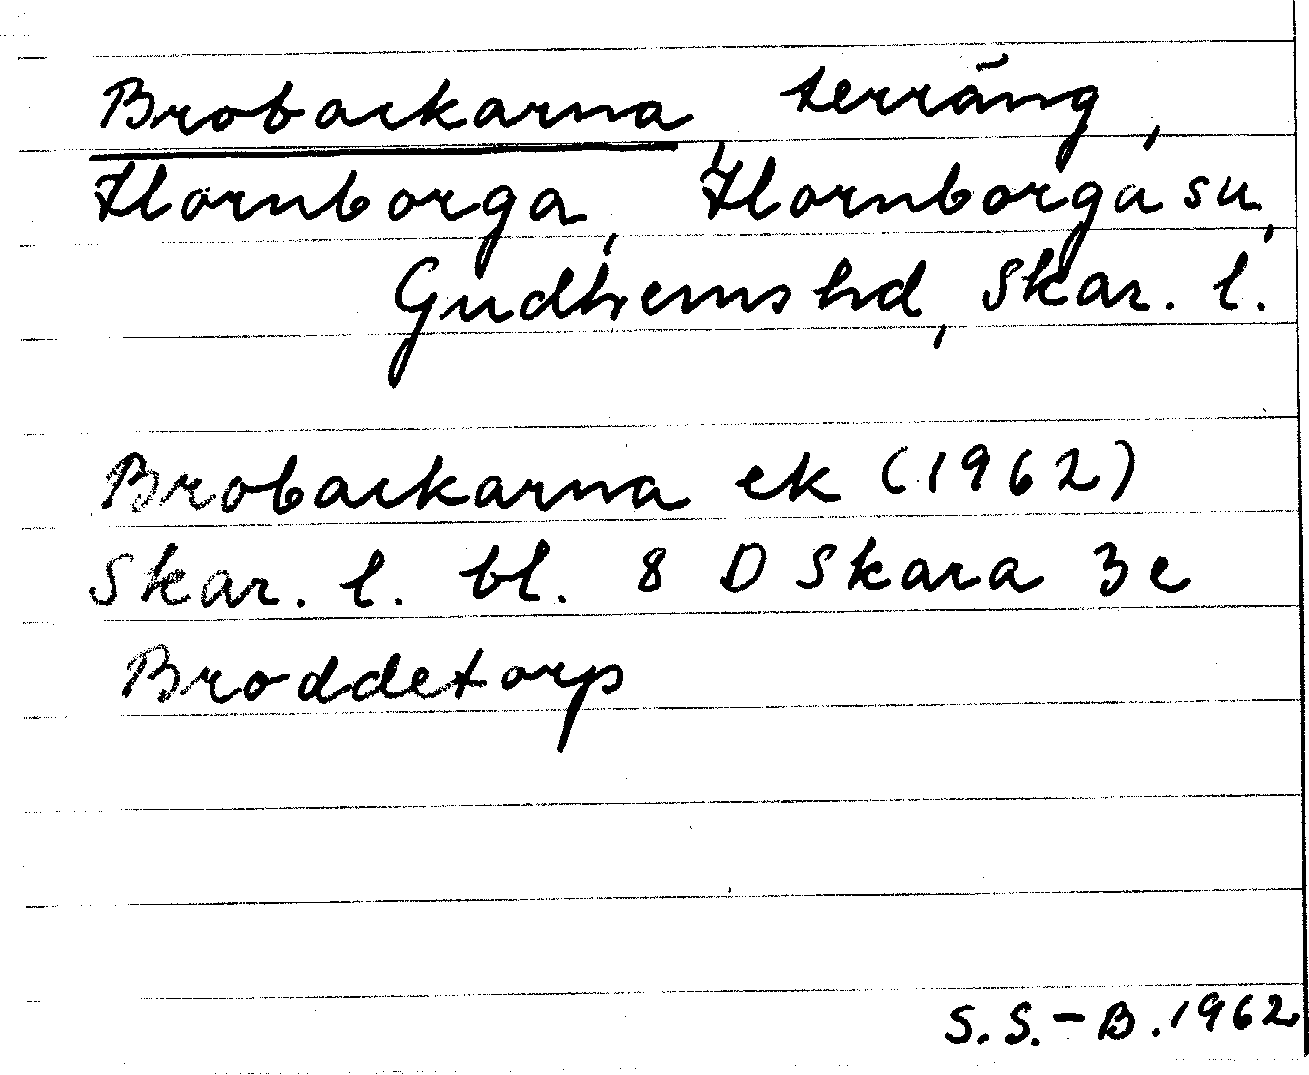 Brobackarna, terräng,
Hornborga, Hornborga sn,
Gudhems hd, Skar. l.
Brobackarna ek (1962)
Skar. l. bl. 8 D Skara 3e
Broddetorp
S. S.-B. 1962